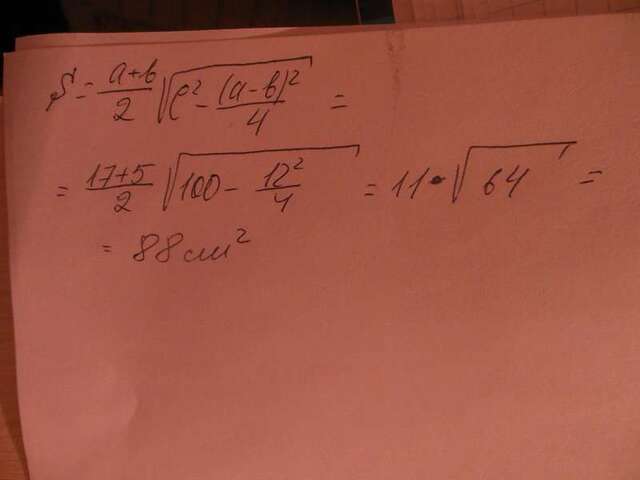 S = (a+b)/2 √(c² - (a-b)²/4) =
= (17+5)/2 √(100 - 12²/4) = 11·√64 =
= 88 см²